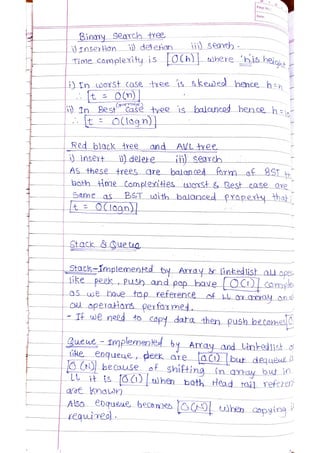 Binary search tree
i) Insertion ii) deletion iii) search.
Time complexity is [O(h)] where 'h' is height
i) In worst case tree is skewed hence h=n
∴ [t = O(n)]
ii) In Best case tree is balanced hence h=
∴ [t = O(log n)]
Red black tree and AVL tree
i) insert ii) delete iii) search
As these trees are balanced form of BST
both time complexities worst & Best case are
same as BST with balanced property that
[t = O(log n)]
Stack & Queue
Stack - Implemented by Array & linkedlist all ope
like peek, Push and pop have [O(1)] comple
as we have top reference of LL or array and
all operations performed.
- If we need to copy data then push becomes
Queue - Implemented by Array and Linkedlist
like enqueue, peek are [O(1)] but dequeue
[O(N)] because of shifting in array but in
LL it is [O(1)] when both Head tail referen
are known
Also enqueue becomes [O(N)] when copying
required.